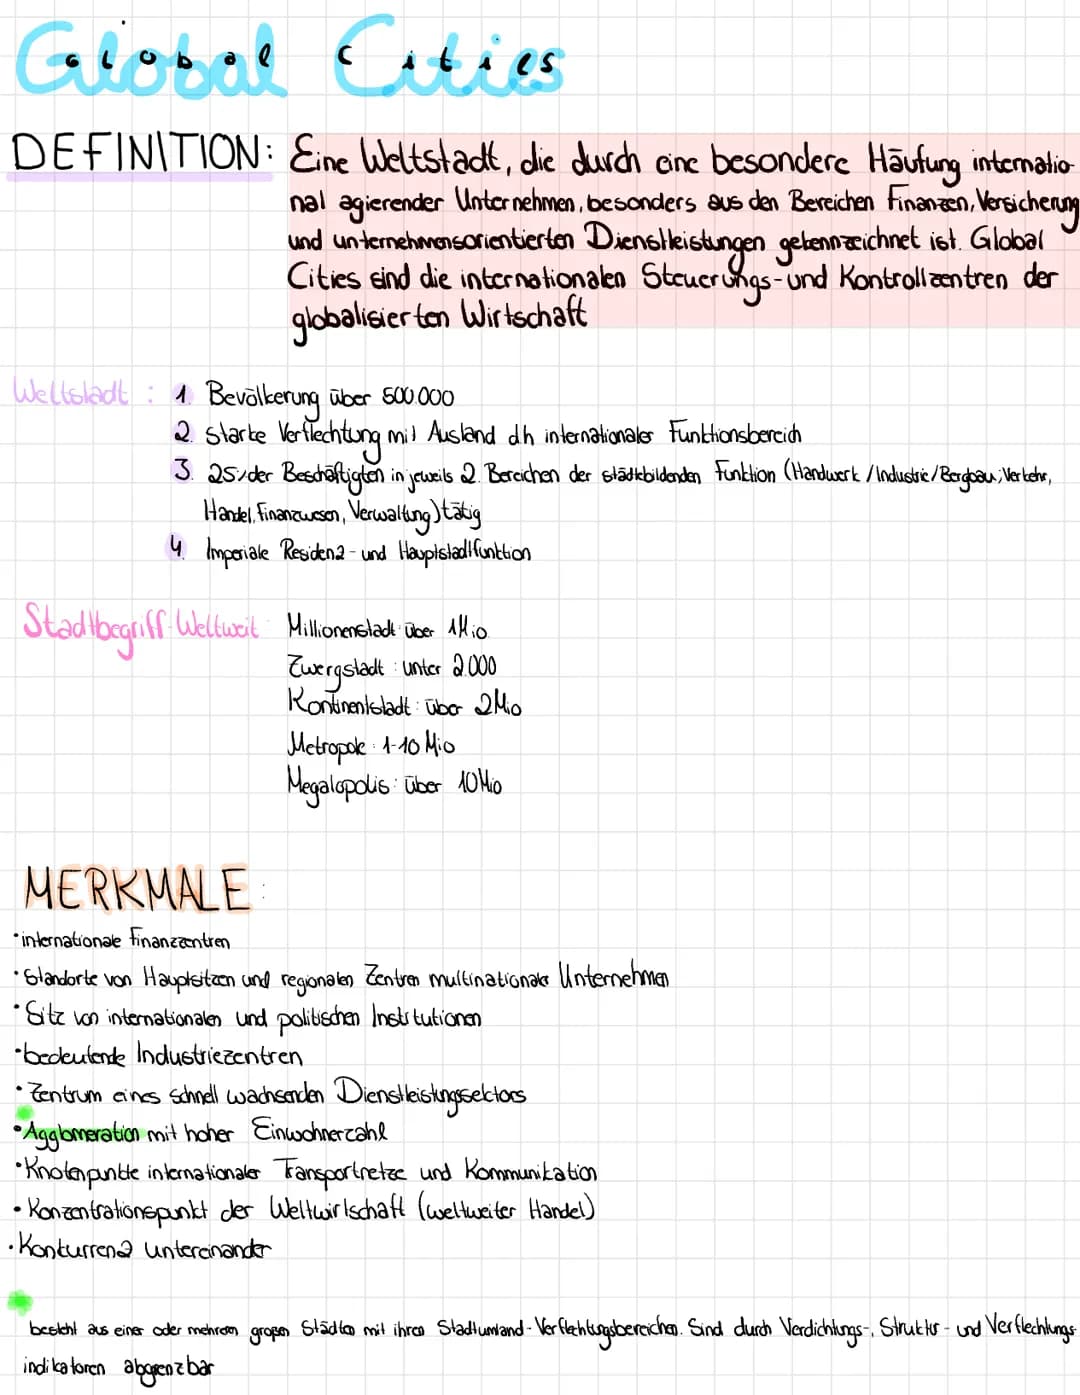 Global Cities
DEFINITION: Eine Weltstadt, die durch eine besondere Häufung internatio-
nal agierender Unternehmen, besonders aus den Bereichen Finanzen, Versicherung
und unternehmensorientierten Dienstleistungen gekennzeichnet ist. Global
Cities sind die internationalen Steuerungs- und Kontrollzentren der
globalisierten Wirtschaft
Weltstadt : 1. Bevölkerung über 500.000
2. starke Verflechtung mit Ausland dh internationaler Funktionsbereich
3. 25% der Beschäftigten in jeweils 2. Bereichen der städtebildenden Funktion (Handwerk / Industrie / Bergbau; Verkehr,
Handel, Finanzwesen, Verwaltung) tätig
4. Imperiale Residenz- und Hauptstadtfunktion
Stadtbegriff-Weltweit: Millionenstadt: über 1Mio.
Zwergstadt : unter 2.000
Kontinentstadt : über 2Mio
Metropole : 1-10 Mio
Megalopolis : über 10Mio
MERKMALE :
• internationale Finanzzentren
• Standorte von Hauptsitzen und regionalen Zentren multinationaler Unternehmen
• Sitz von internationalen und politischen Institutionen
• bedeutende Industriezentren
• Zentrum eines schnell wachsenden Dienstleistungssektors
• Agglomeration mit hoher Einwohnerzahl
• Knotenpunkte internationaler Transportnetze und Kommunikation
• Konzentrationspunkt der Weltwirtschaft (weltweiter Handel)
• Konkurrenz untereinander
besteht aus einer oder mehreren großen Städten mit ihren Stadtumland-Verflechtungsbereichen. Sind durch Verdichtungs-, Struktur- und Verflechtungs-
indikatoren abgrenzbar